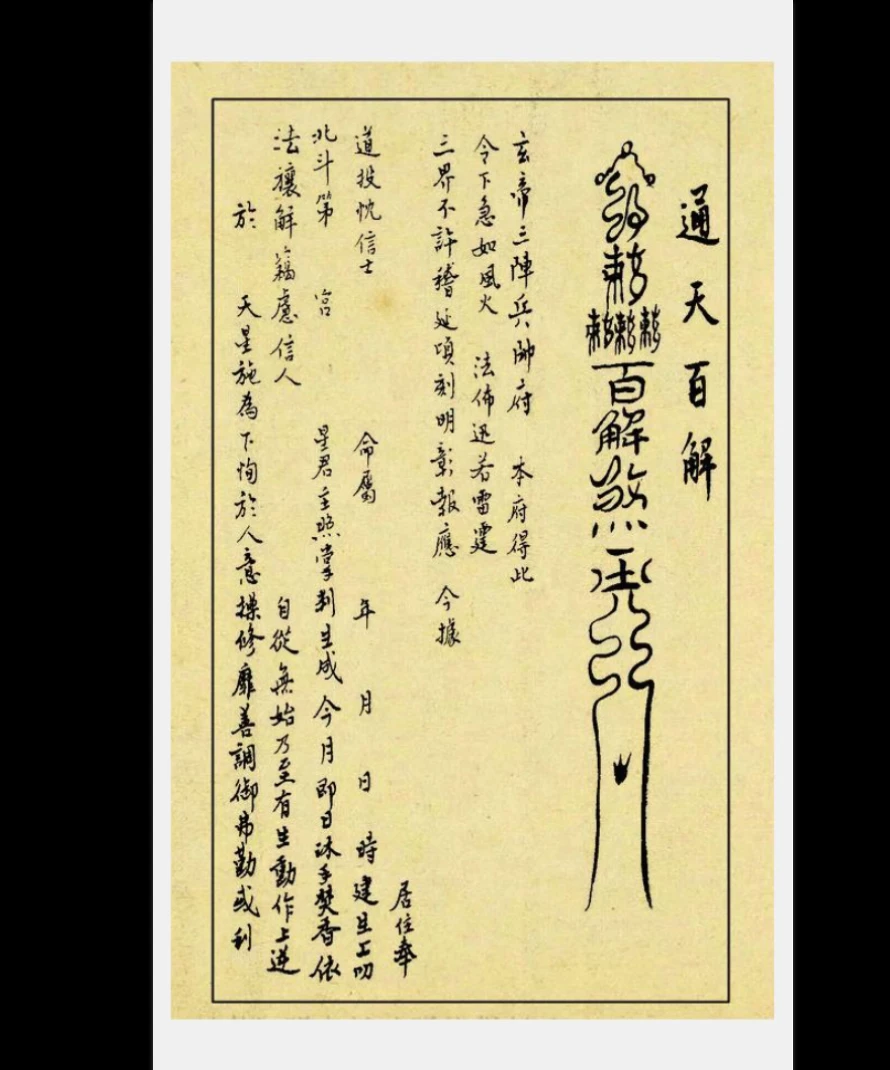 通天百解
百解煞
玄帝三陣兵帥府 本府得此
令下急如風火 法佈迅若雷霆
三界不許稽延頃刻明彰報應 今據
居住奉
道投忱信士 命屬 年 月 日 時建生上叨
北斗第 宮 星君主照掌判生成今月即日沐手焚香依
法禳解 信人 自從無始乃至有生動作上逆
於 天星施為下 於人意操修靡善調御弗勤或利